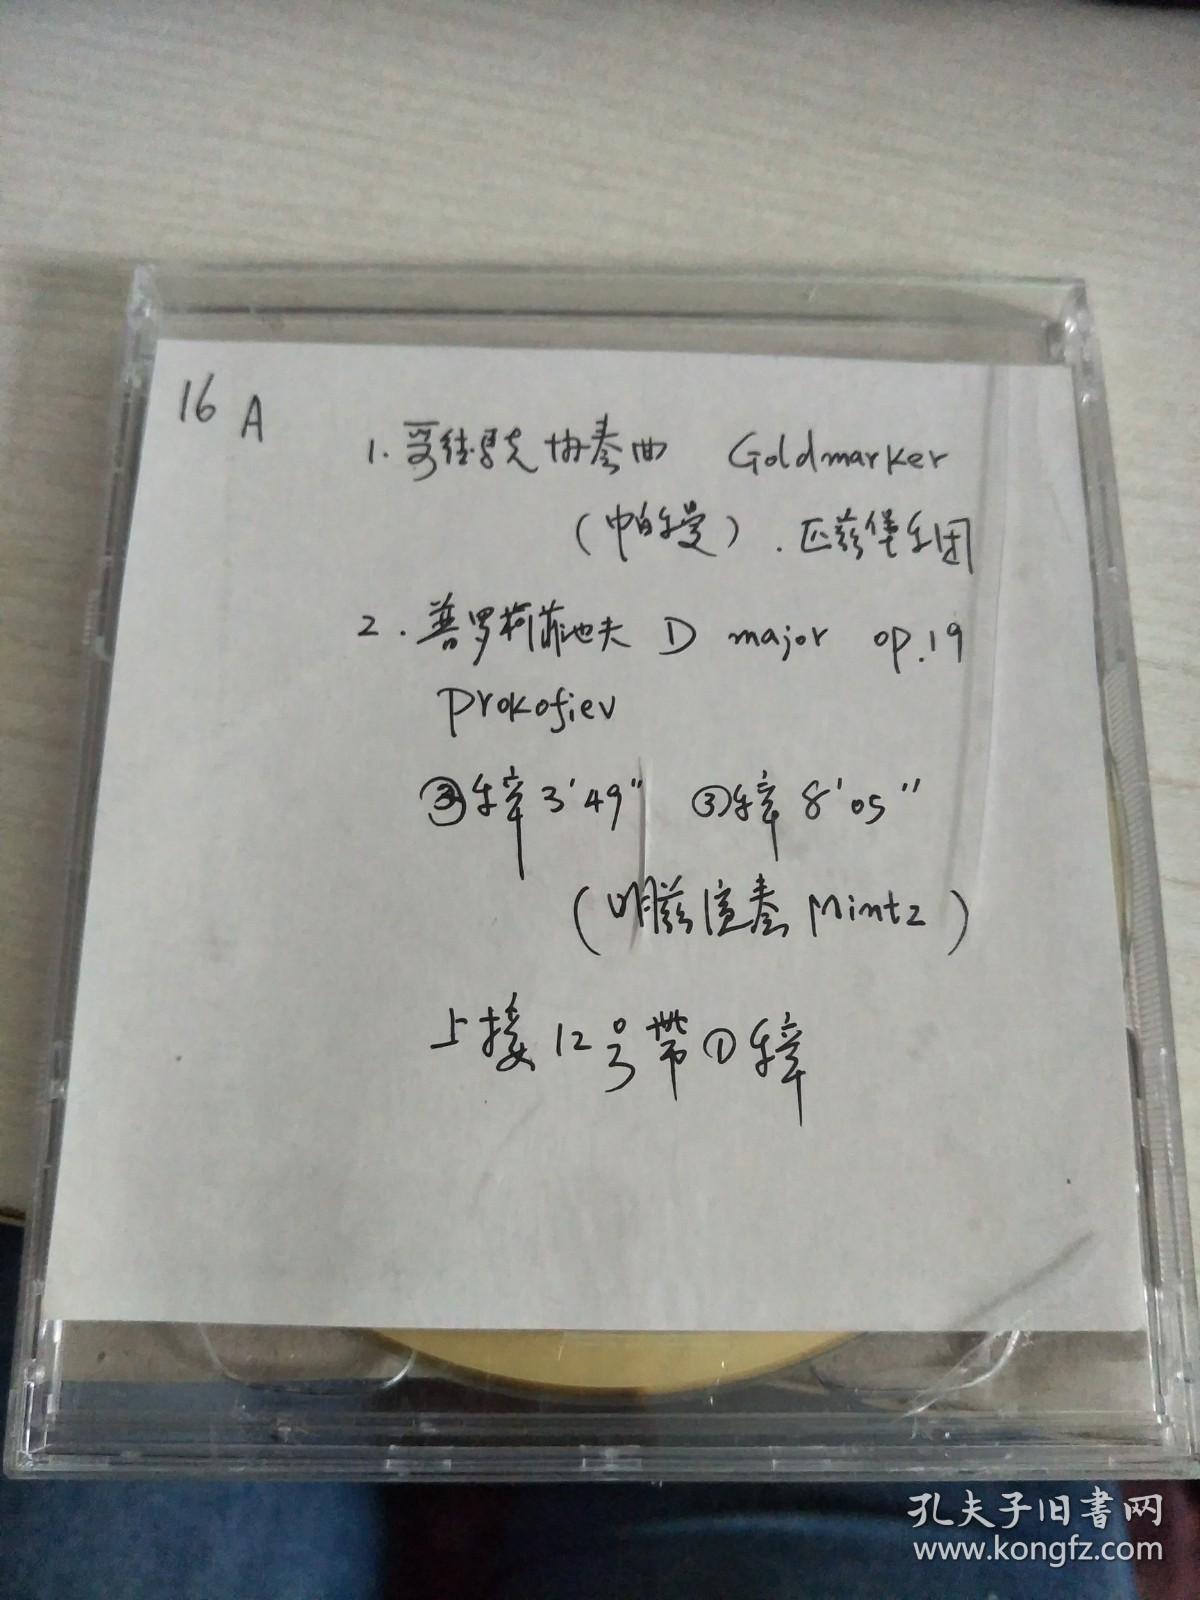 16 A
1. 哥德马克协奏曲 Goldmarker
(帕尔曼). 匹兹堡乐团
2. 普罗柯菲也夫 D major op.19
Prokofiev
②乐章 3'49" ③乐章 8'05"
(明兹演奏 Mintz)
上接 12号带①乐章
孔夫子旧书网
www.kongfz.com